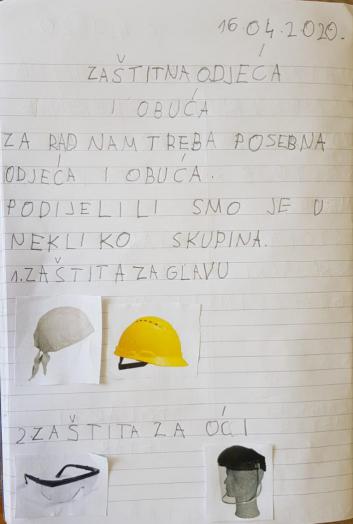 16.04.2020.
ZAŠTITNA ODJEĆA
I OBUĆA
ZA RAD NAM TREBA POSEBNA
ODJEĆA I OBUĆA.
PODIJELILI SMO JE U
NEKLIKO SKUPINA.
1. ZAŠTITA ZA GLAVU
2. ZAŠTITA ZA OĆI